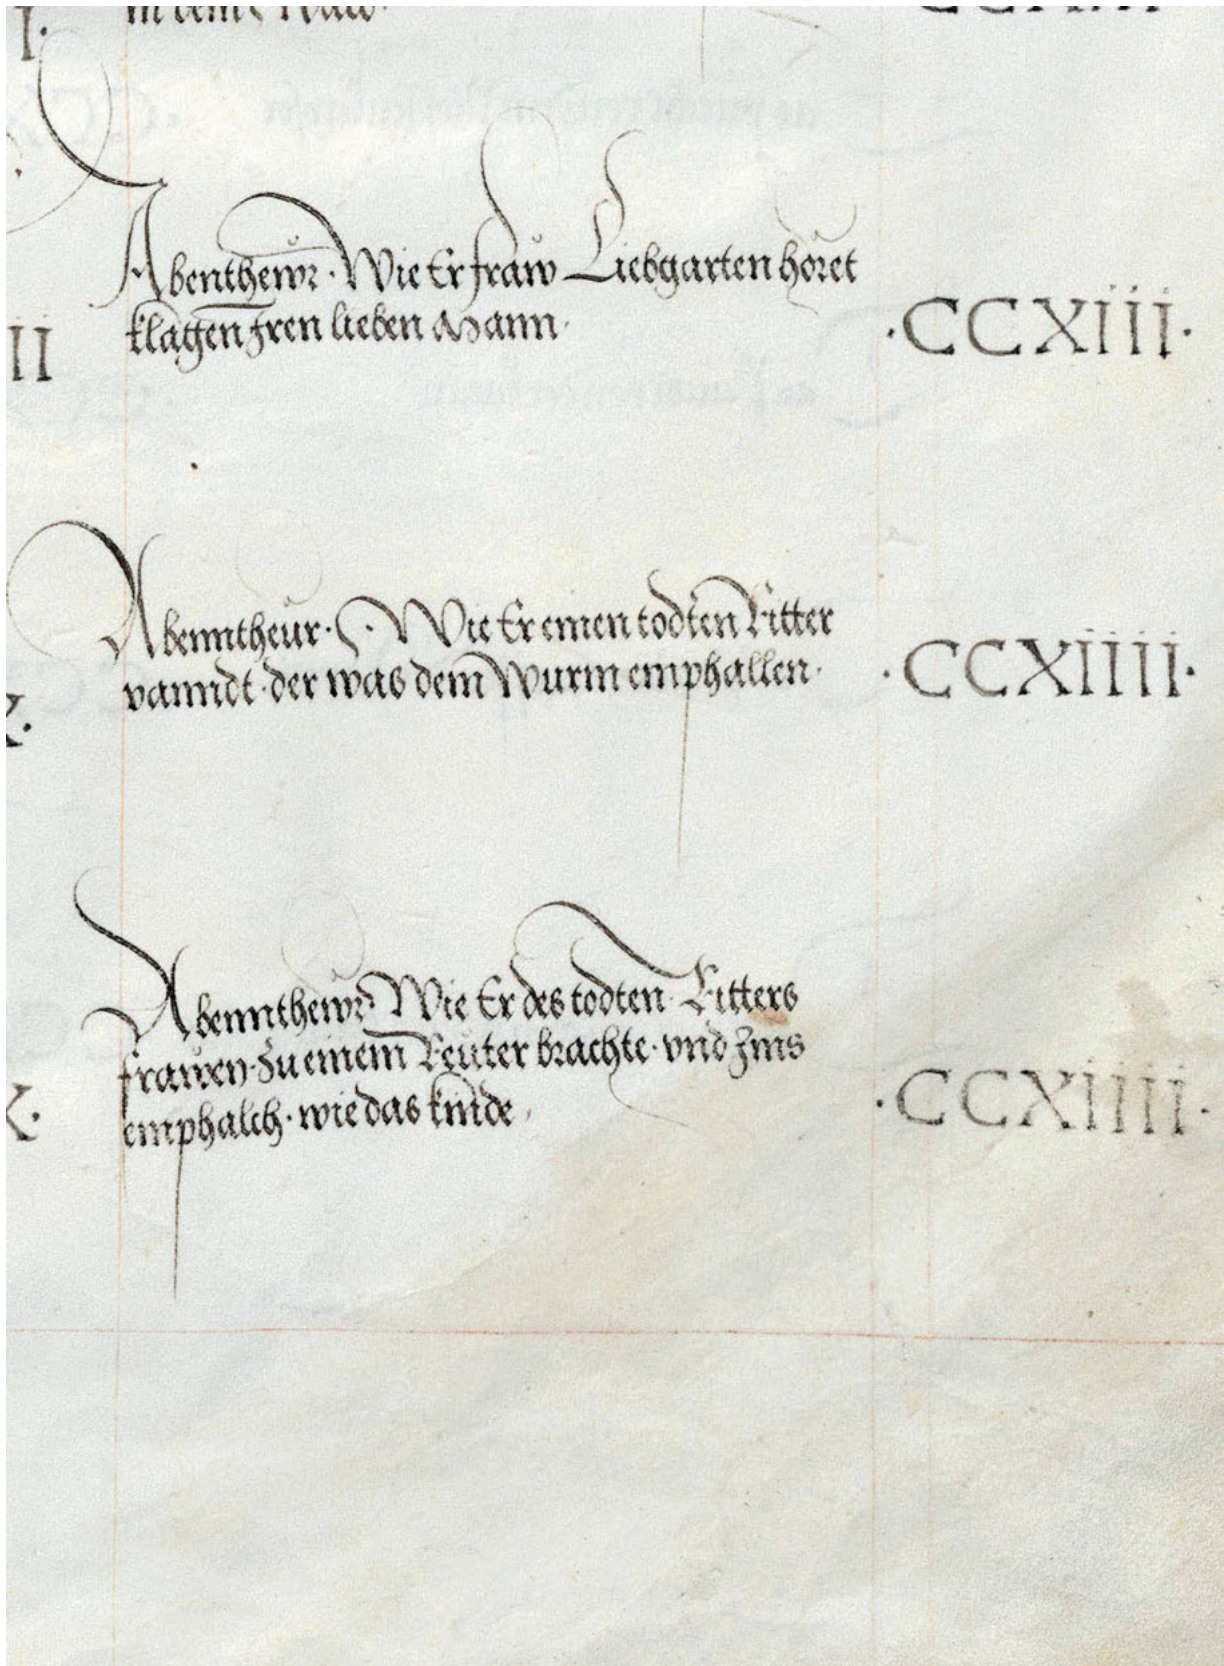 Abenthewr · Wie Er fraw Liebgarten hőret
klagen Iren lieben Mann ·
· CCXiii ·
II
Abenntheűr · Wie Er einen todten Ritter
vanndt · der was dem Wurm emphallen ·
· CCXiiii ·
X ·
Abennthewr Wie Er des todten Ritters
frawen · zu einem Reuter brachte · vnd Ims
emphalch · wie das kinde
· CCXiiii ·
X ·